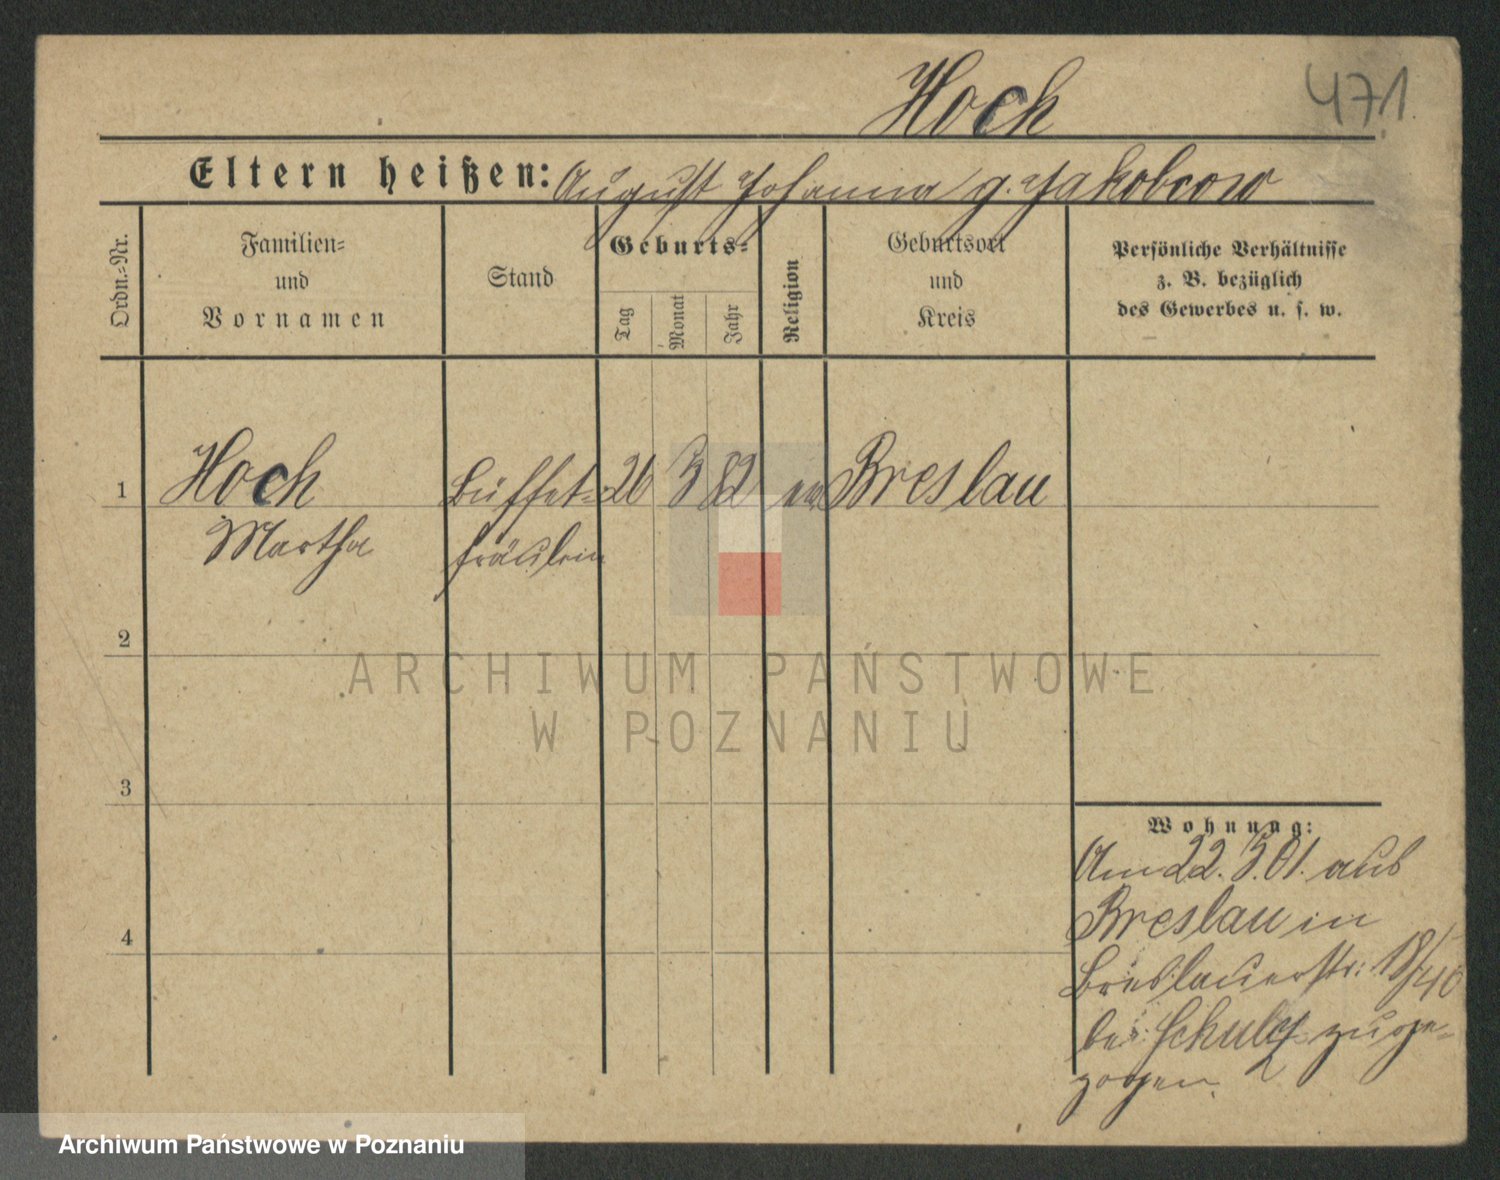 Hoch
471.
Eltern heißen: August Johanna g. Jakobcow
Ordn.=Nr.
Familien=
und
Vornamen
Stand
Geburts=
Tag
Monat
Jahr
Religion
Geburtsort
und
Kreis
Persönliche Verhältnisse
z. B. bezüglich
des Gewerbes u. s. w.
1 Hoch Buffet= 26 3 82 ev Breslau
Martha fräulein
2
ARCHIWUM PAŃSTWOWE
W POZNANIU
3
Wohnung:
Am 22. 3. 01. aus
Breslau in
4
Breslauerstr: 18/
bei Schulz zuge=
zogen.
Archiwum Państwowe w Poznaniu